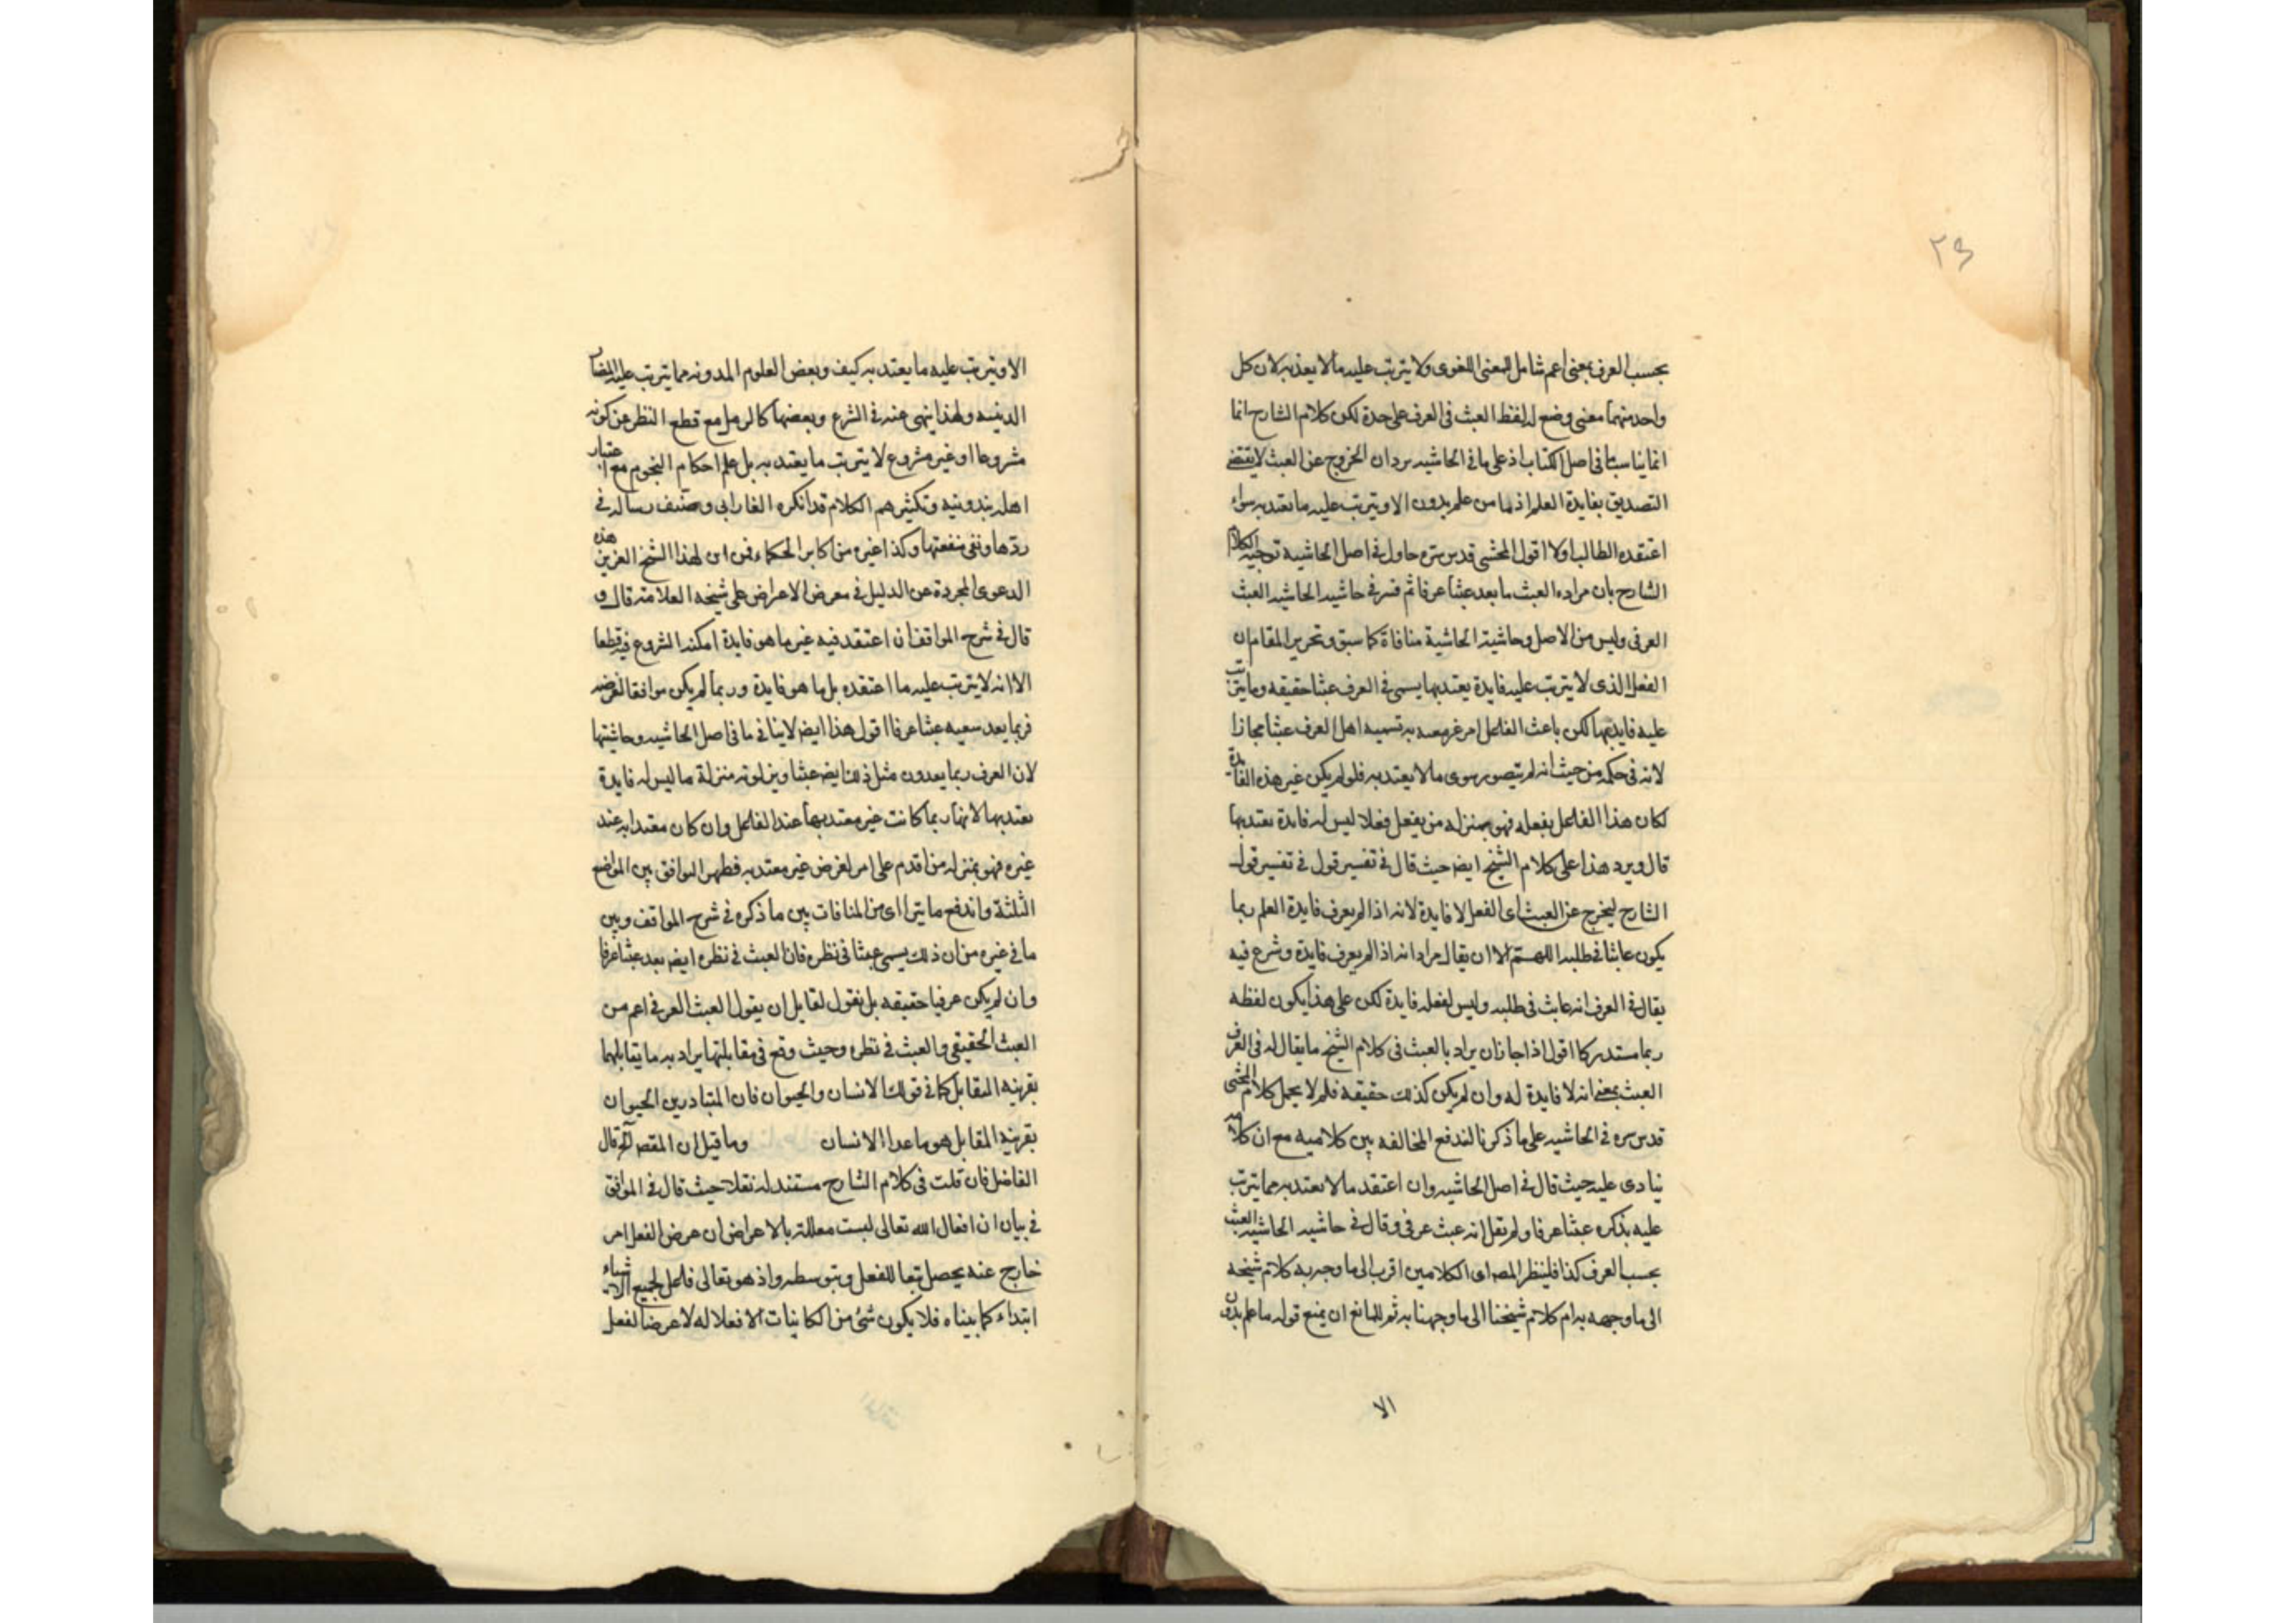 ٢٤
بحسب العرف بمعنى اعم شامل للمعنى اللغوى ولا يترتب عليه مالا يعتد به لان كل
واحد منهما معنى وضع له لفظ العبث فى العرف على حدة لكن كلام الشارح انما
انما يناسب ما فى اصل الكتاب اذ على ما فى الحاشيه يرد ان الخروج عن العبث لا يقتضى
التصديق بفايدة العلم اذ ما من علم يدون الا ويترتب عليه ما يعتد به سواء
اعتقده الطالب اولا اقول المحشى قدس سره حاول فى اصل الحاشيه توجيه الكلام
الشارح بان مراده العبث ما يعد عبثا عرفا ثم فسر فى حاشيه الحاشيه العبث
العرفى وليس من الاصل وحاشية الحاشية منافاة كما سبق وتحرير المقام ان
الفعل الذى لا يترتب عليه فايدة يعتد بها يسمى فى العرف عبثا حقيقه وما يترتب
عليه فايدتها لكن باعث الفاعل امر غير معتد به تسميه اهل العرف عبثا مجازا
لانه فى حكمه من حيث انه لم يتصور سوى مالا يعتد به فلو لم يكن غير هذه الفايدة
لكان هذا الفاعل بفعله فهو بمنزله من يفعل فعلا ليس له فايدة يعتد بها
قال ويرد هذا على كلام الشيخ ايضا حيث قال فى تفسير قول فى تفسير قول
الشارح ليخرج عن العبث اى الفعل لا فايدة لانه اذا لم يعرف فايدة العلم ربما
يكون عابثا فى طلبه اللهم الا ان يقال مراده انه اذا لم يعرف فايدة وشرع فيه
يقال فى العرف انه عابث فى طلبه وليس لفعله فايدة لكن على هذا يكون لفظه
ربما مستدركا اقول اذا جاز ان يراد بالعبث فى كلام الشيخ ما يقال له فى العرف
العبث بمعنى انه لا فايدة له وان لم يكن كذلك حقيقه فلم لا يحمل كلام المحشى
قدس سره فى الحاشيه على ما ذكرنا لتدفع المخالفه بين كلاميه مع ان كلامه
ينادى عليه حيث قال فى اصل الحاشيه وان اعتقد مالا يعتد به مما يترتب
عليه بذكره عبثا عرفا ولم يقل انه عبث عرفى وقال فى حاشيه الحاشيه العبث
بحسب العرف كذا فلينظر المنصف اى الكلامين اقرب الى ما وجه به كلام شيخه
الى ما وجهه به ام كلام شيخنا الى ما وجهنا به ثم للمانع ان يمنع قوله ما علم يدون
الا
الا ويترتب عليه ما يعتد به كيف وبعض العلوم المدونه مما يترتب عليه المضار
الدينيه ولهذا ينهى عنه فى الشرع وبعضها كالرمل مع قطع النظر عن كونه
مشروعا او غير مشروع لا يترتب ما يعتد به بل علم احكام النجوم مع اعتبار
اهله بتدوينه وتكثيرهم الكلام قد انكره الفارابى وصنف رساله فى
ردها ونفى منفعتها وكذا غيره من اكابر الحكماء فمن اين لهذا الشيخ العزيز هذه
الدعوى المجردة عن الدليل فى معرض الاعراض على شيخه العلامة قال و
قال فى شرح المواقف ان اعتقد فيه غير ما هو فايدة امكنه الشروع فيه قطعا
الا انه لا يترتب عليه ما اعتقده بل ما هو فايدة وربما لم يكن موافقا لغرضه
فربما يعد سعيه عبثا عرفا اقول هذا ايضا لا ينافى ما فى اصل الحاشيه وحاشيتها
لان العرف ربما يعدون مثل ذلك ايضا عبثا وينزلونه منزلة ما ليس له فايدة
يعتد بها لانها ربما كانت غير معتد بها عند الفاعل وان كان معتدا به عند
غيره فهو بمنزله من اقدم على امر لغرض غير معتد به فظهر التوافق بين المواضع
الثلثة واندفع ما يتراى من المنافات بين ما ذكره فى شرح المواقف وبين
ما فى غيره من ان ذلك يسمى عبثا فى نظره فان العبث فى نظره ايضا يعد عبثا عرفا
وان لم يكن عرفيا حقيقه بل نقول لقايل ان يقول العبث العرفى اعم من
العبث الحقيقى والعبث فى نظره وحيث وقع فى مقابلتها يراد به ما يقابلهما
بقرينه المقابل كما فى قولك الانسان والحيوان فان المتبادر من الحيوان
بقرينه المقابل هو ما عدا الانسان وما قيل ان المقصد آه قال
الفاضل فان قلت فى كلام الشارح مستند له نقلا حيث قال فى المواقف
فى بيان ان افعال الله تعالى ليست معللة بالاعراض ان عرض الفعل امر
خارج عنه يحصل تبعا للفعل وبتوسطه واذ هو تعالى فاعل لجميع الاشياء
ابتداء كما بيناه فلا يكون شئ من الكاينات الا فعلا له لا عرضا لفعل